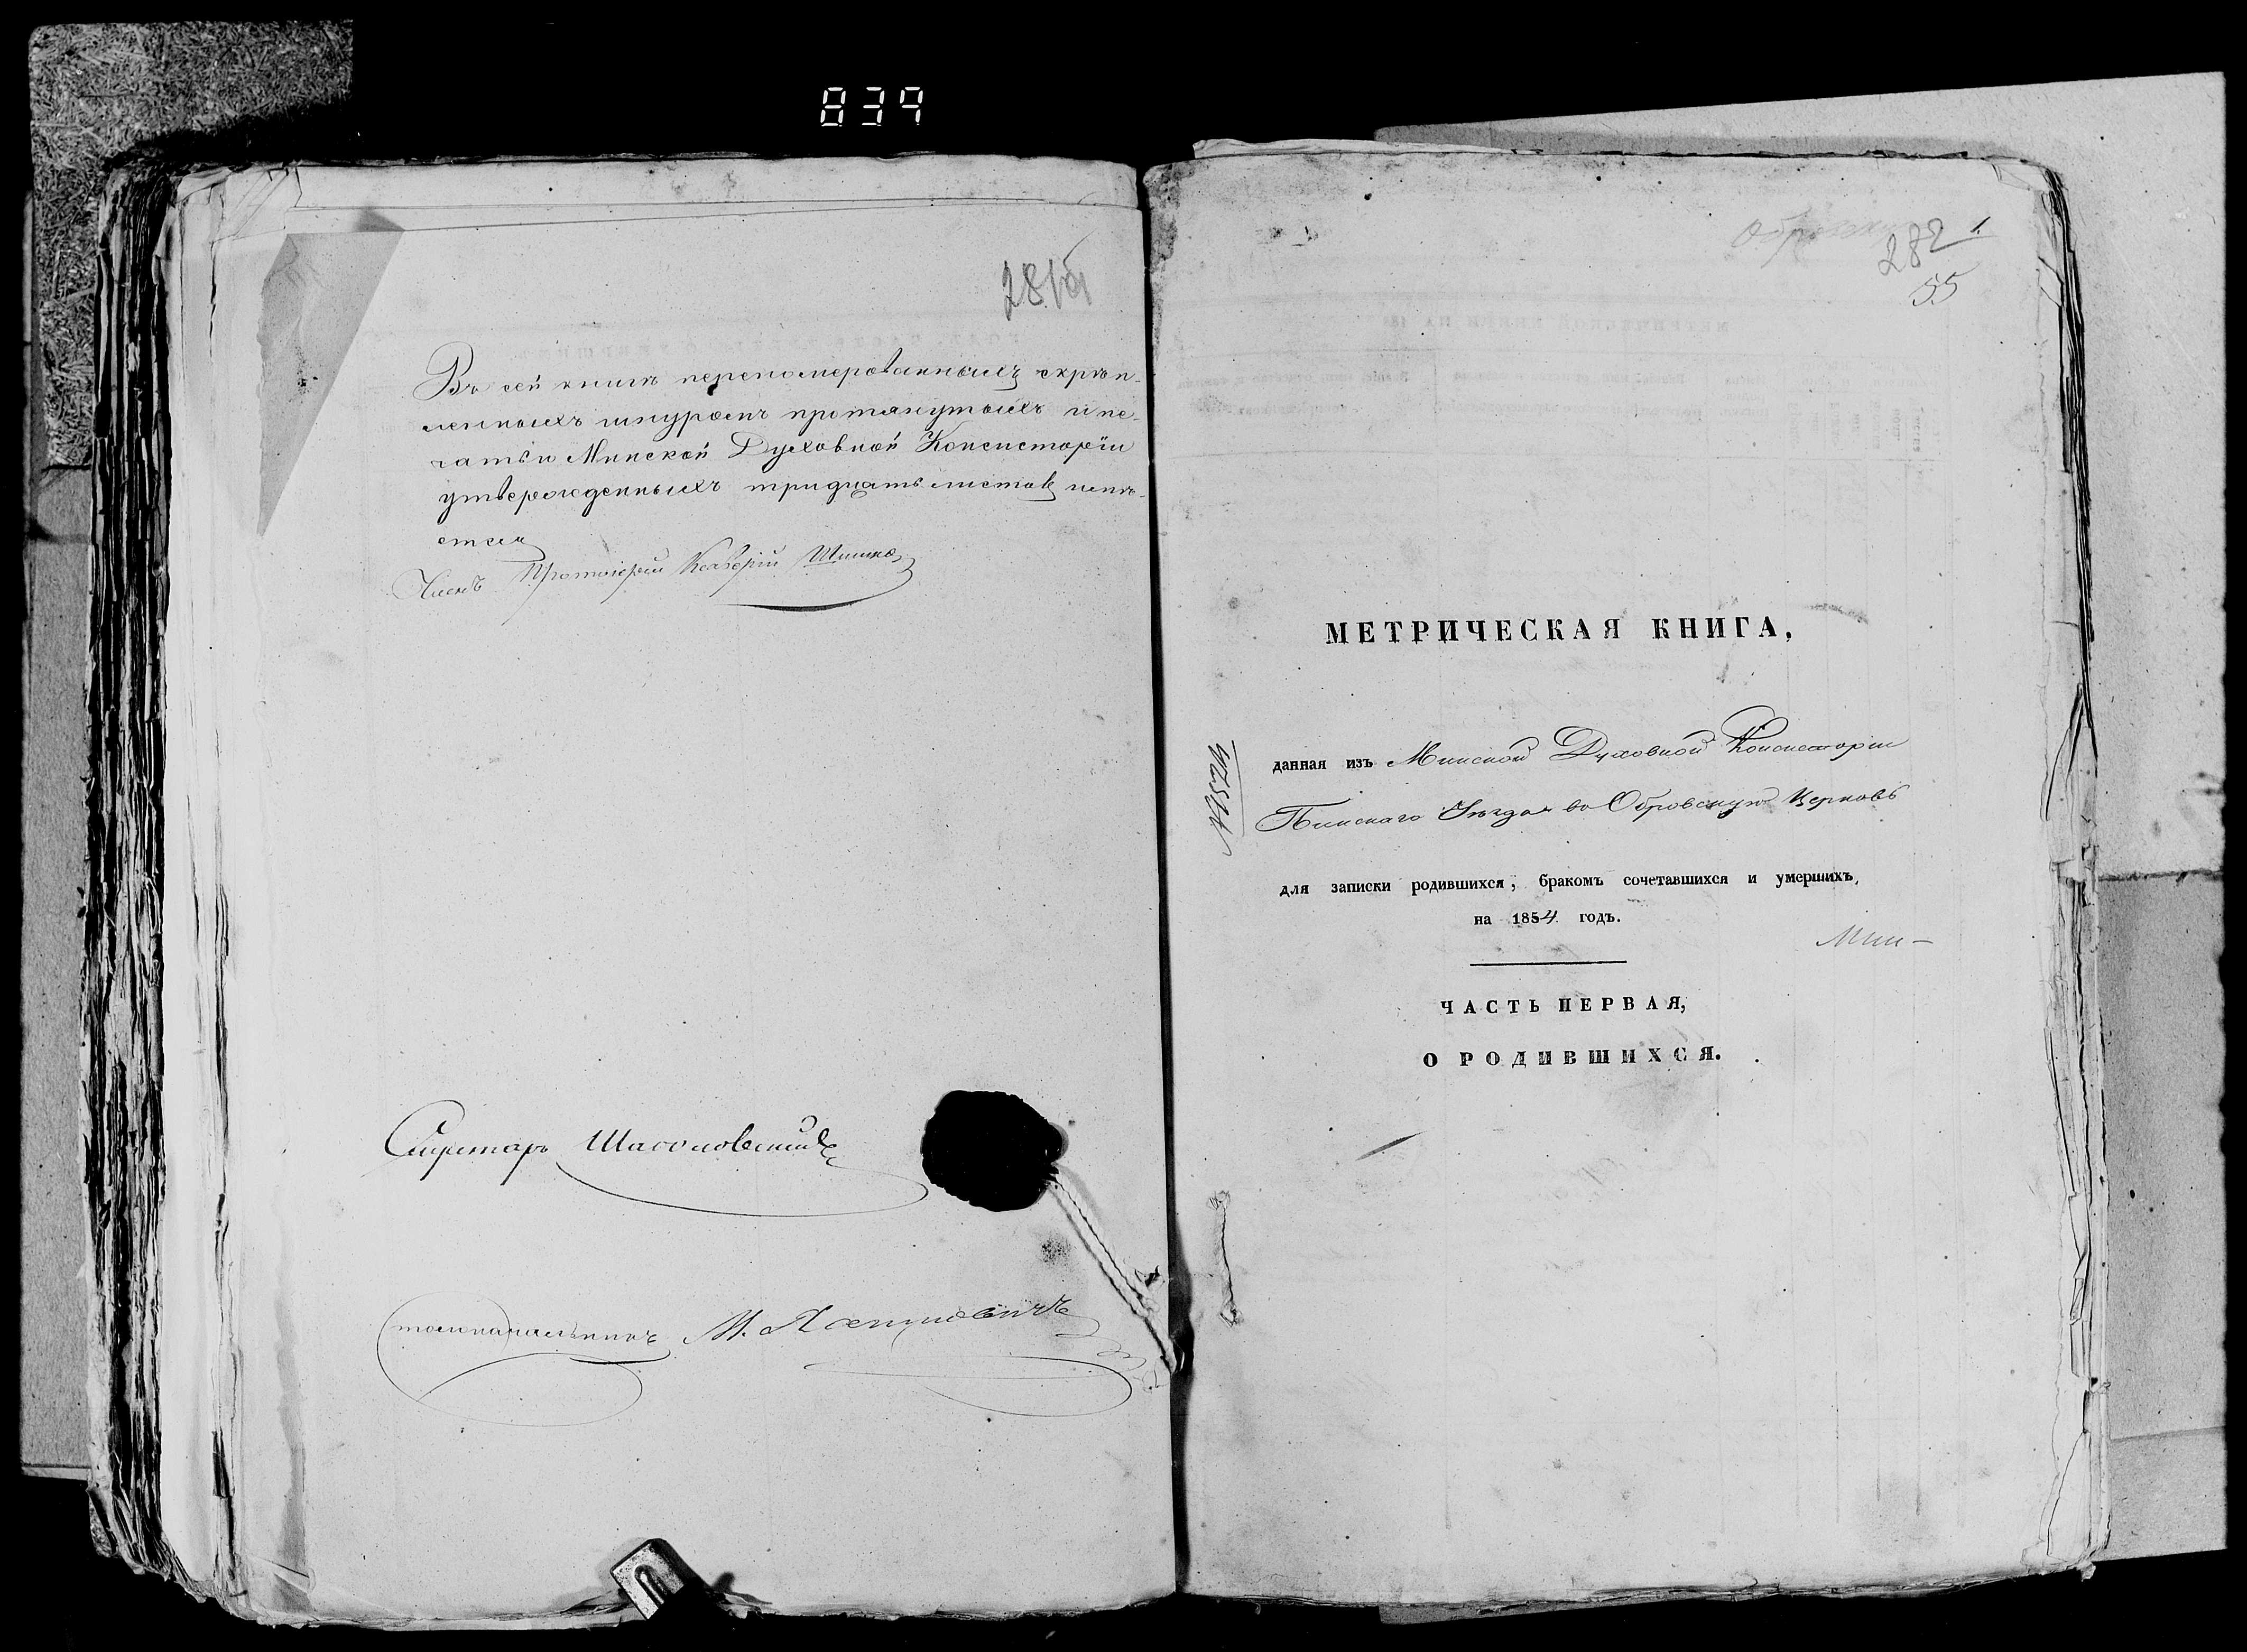 839
Въ сей книгѣ перепомерованныхъ скрѣп-
ленныхъ шнуромъ протянутыхъ и пе-
чатью Минской Духовной Консисторіи
утвержденныхъ тридцать листовъ имѣ-
ется
Членъ Протоіерей
Секретарь
Столоначальникъ М.
282 1.
55
МЕТРИЧЕСКАЯ КНИГА,
№1524
данная изъ Минской Духовной Консисторіи
Пинскаго Уѣзда въ Обровскую Церковь
для записки родившихся, бракомъ сочетавшихся и умершихъ,
на 1854 годъ.
Мин-
ЧАСТЬ ПЕРВАЯ,
О РОДИВШИХСЯ.